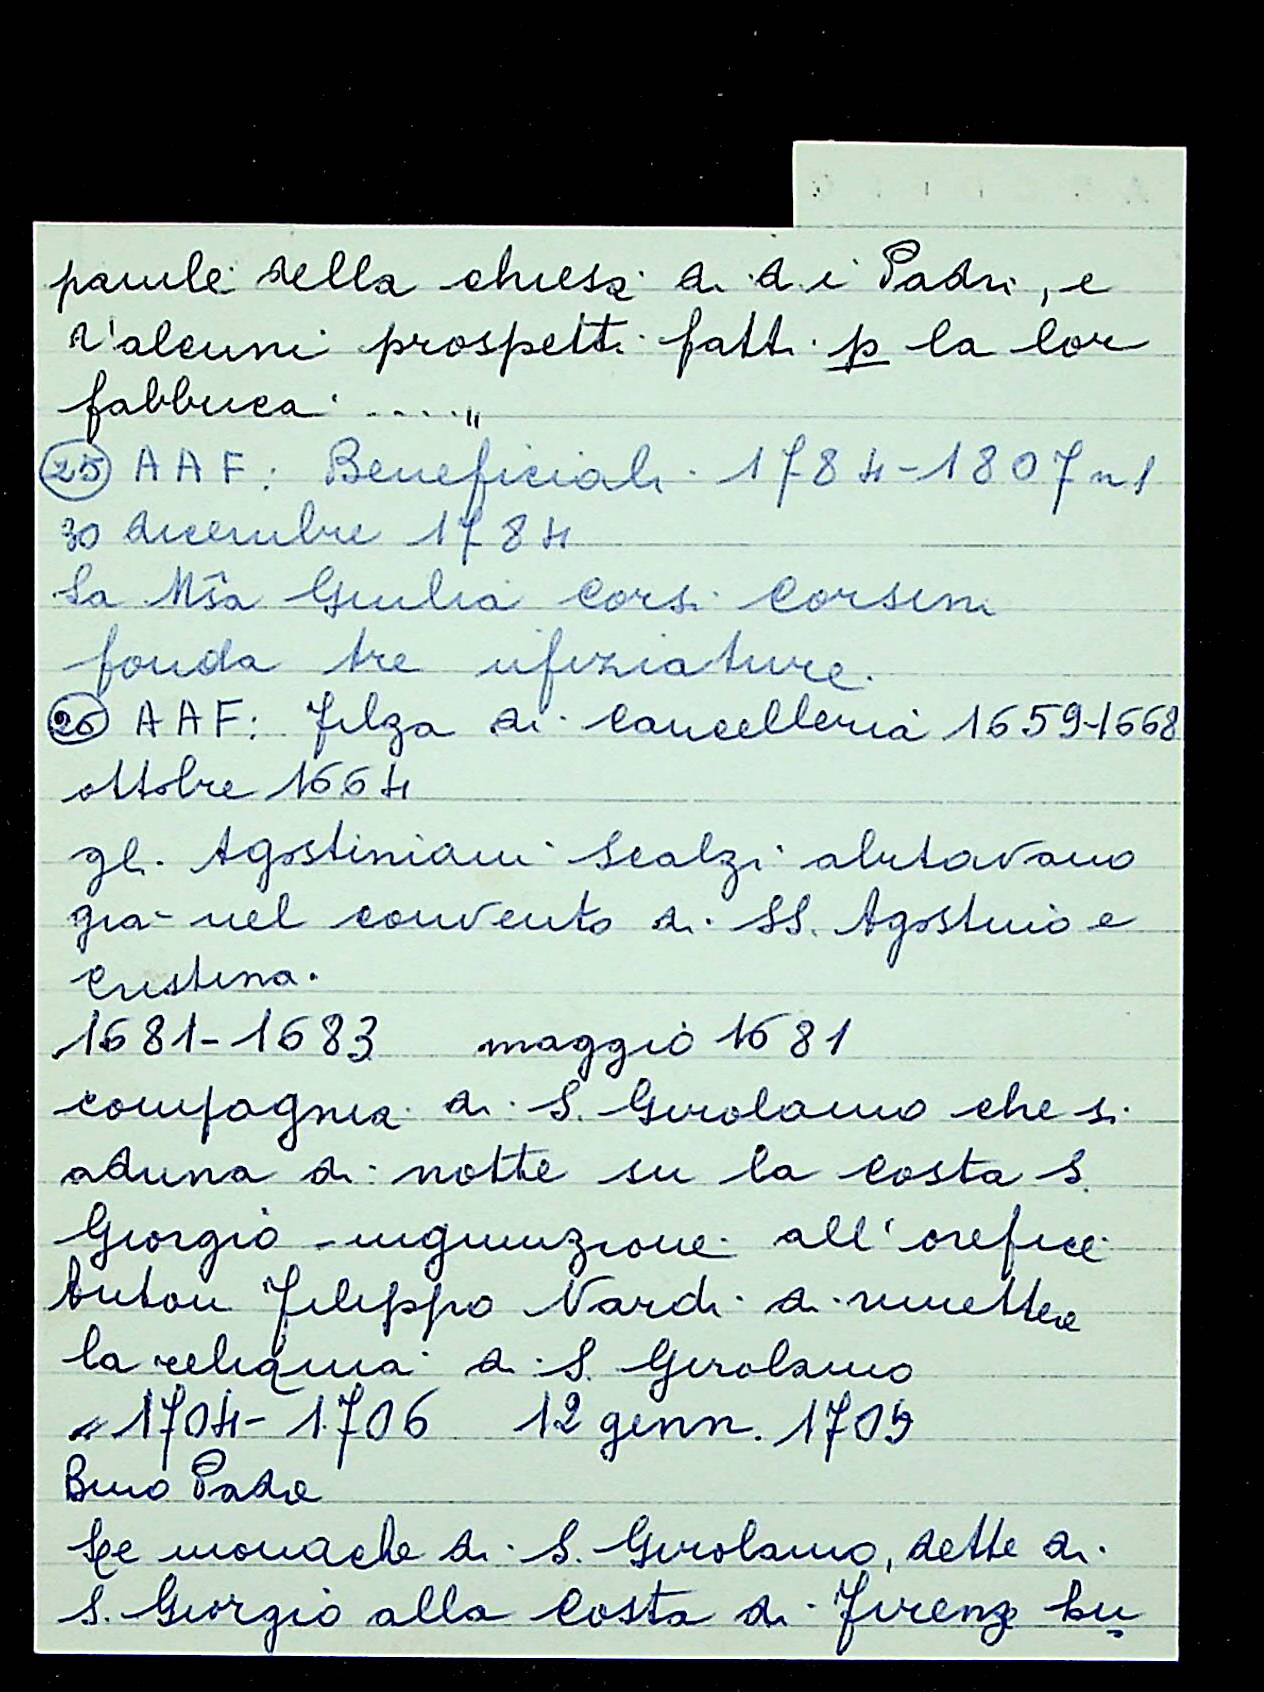 parule della chiesa di d.i Padri, e
d'alcuni prospetti fatti p la lor
fabbrica ...."
25 AAF: Beneficiali 1784-1807 n 1
30 dicembre 1784
La Msa Giulia Corsi Corsini
fonda tre ufiziature.
26 AAF: Filza di Cancelleria 1659-1668
ottobre 1664
gli Agostiniani Scalzi abitavano
già nel convento di SS. Agostino e
Cristina.
1681-1683 maggio 1681
compagnia di S. Girolamo che si
aduna di notte su la costa S.
Giorgio - ingiunzione all'orefice
Anton Filippo Nardi di rimettere
la reliquia di S. Girolamo
" 1704-1706 12 genn. 1705
Bmo Padre
Le monache di S. Girolamo, dette di
S. Giorgio alla Costa di Firenze